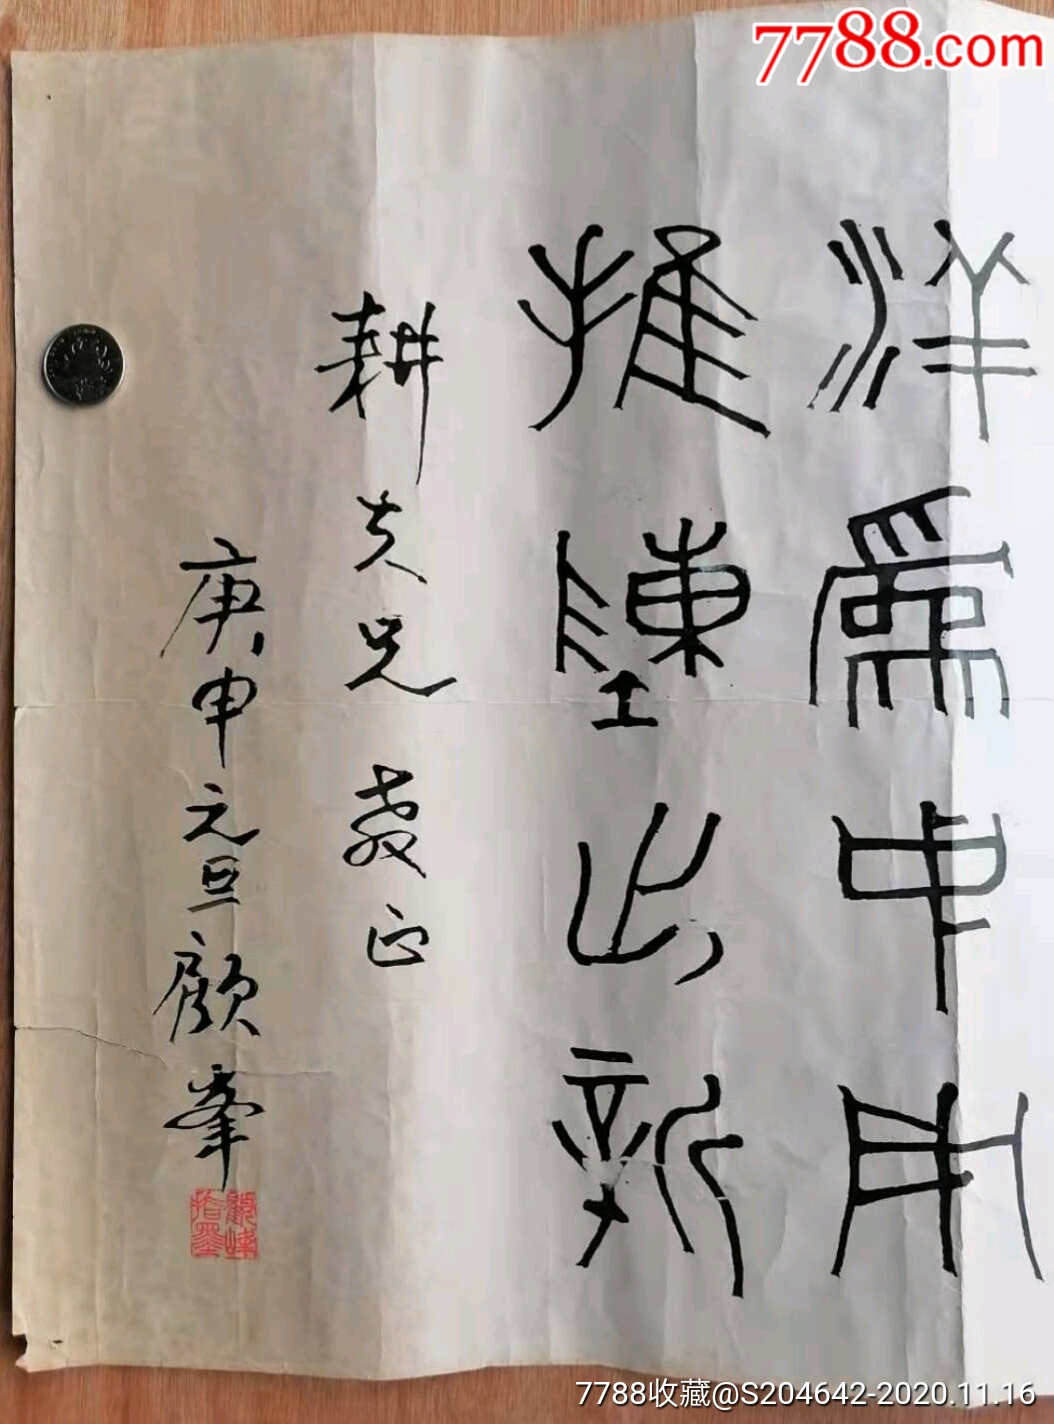 7788.com
洋爲中用
推陳出新
耕夫兄教正
庚申元旦顧峯
顧峰指墨
7788收藏@S204642-2020.11.16